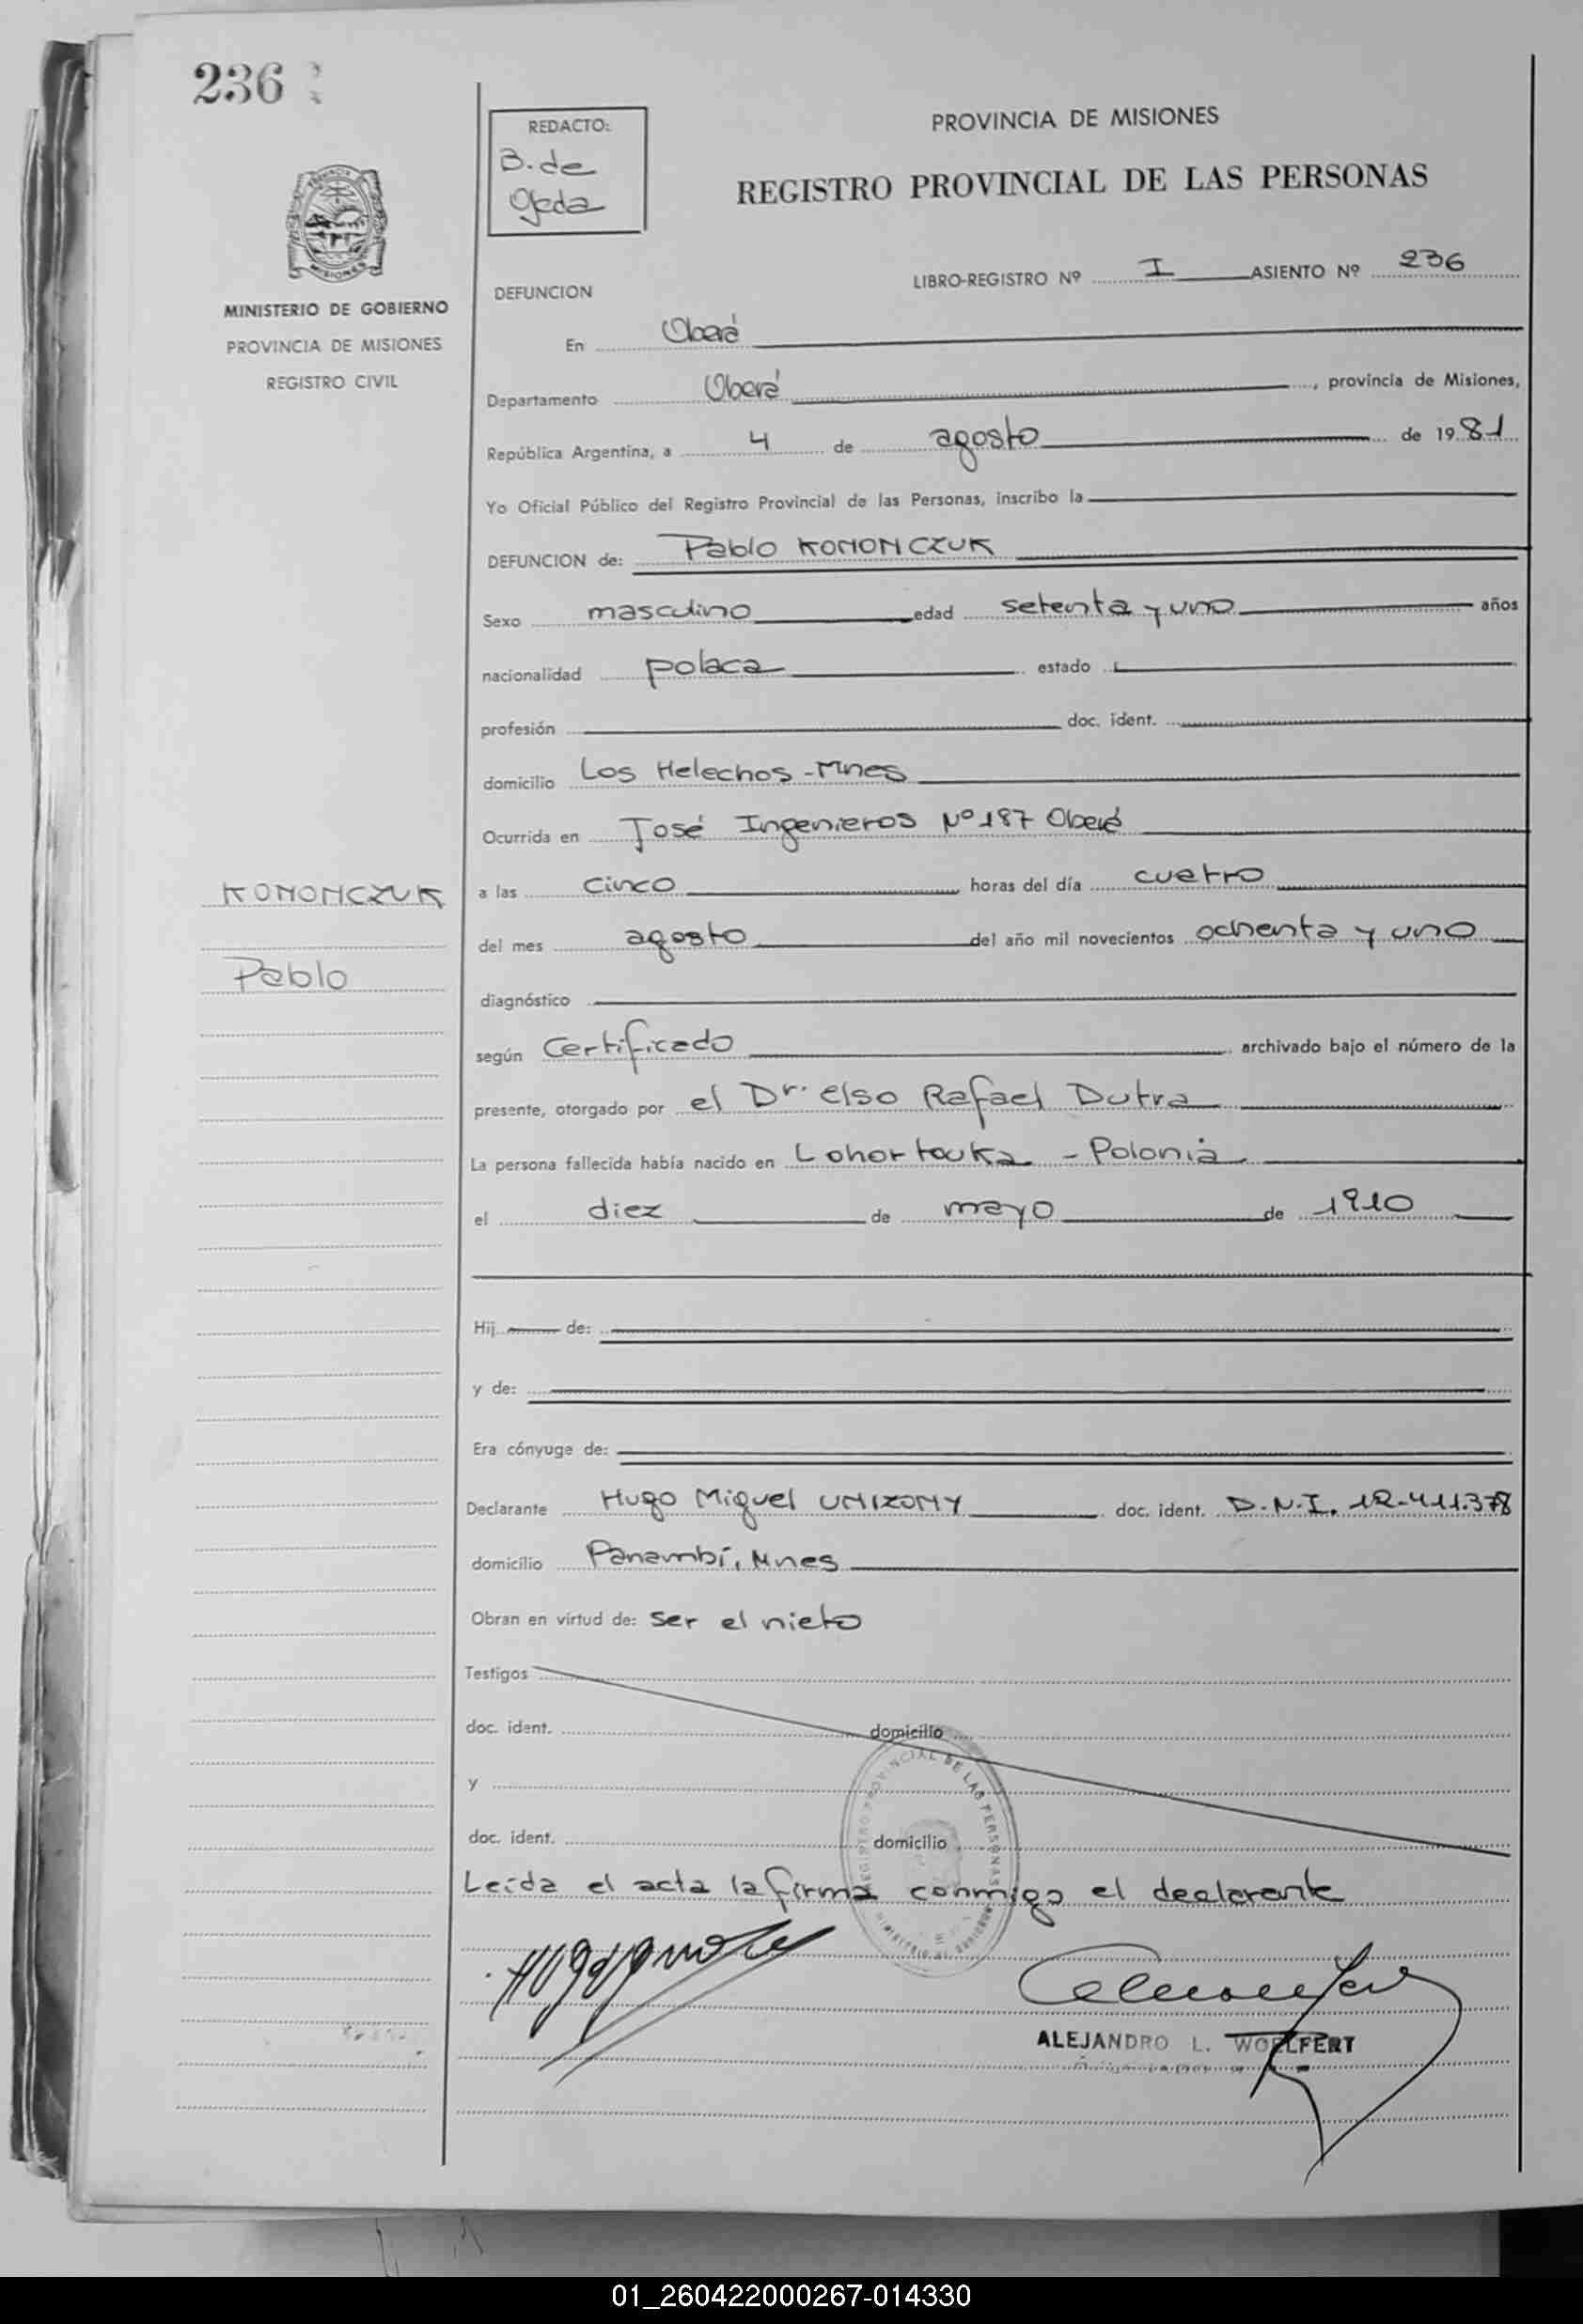 236
REDACTO:
B. de
Ojeda
PROVINCIA DE MISIONES
REGISTRO PROVINCIAL DE LAS PERSONAS
MISIONES
MINISTERIO DE GOBIERNO
PROVINCIA DE MISIONES
REGISTRO CIVIL
LIBRO-REGISTRO Nº I ASIENTO Nº 236
DEFUNCION
En Oberá
Departamento Oberá, provincia de Misiones,
República Argentina, a 4 de agosto de 1981
Yo Oficial Público del Registro Provincial de las Personas, inscribo la
DEFUNCION de: Pablo KONONCZUK
Sexo masculino edad setenta y uno años
nacionalidad polaca estado
profesión doc. ident.
domicilio Los Helechos - Mnes
Ocurrida en José Ingenieros Nº 187 Oberá
KONONCZUK
Pablo
a las cinco horas del día cuatro
del mes agosto del año mil novecientos ochenta y uno
diagnóstico
según Certificado archivado bajo el número de la
presente, otorgado por el Dr. elso Rafael Dutra
La persona fallecida había nacido en Lohortouka - Polonia
el diez de mayo de 1910
Hij de:
y de:
Era cónyuge de:
Declarante Hugo Miguel UNIZONY doc. ident. D.N.I. 12.411.378
domicilio Panambí, Mnes
Obran en virtud de: ser el nieto
Testigos
doc. ident. domicilio
y
doc. ident. domicilio
REGISTRO PROVINCIAL DE LAS PERSONAS
Leída el acta la firma conmigo el declarante
ALEJANDRO L. WOELFERT
01_260422000267-014330